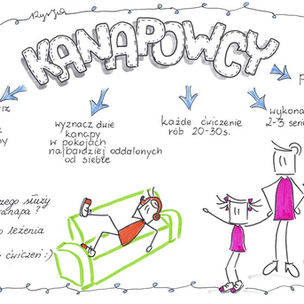 KANAPOWCY
wyznacz dwie
kanapy
w pokojach
najbardziej oddalonych
od siebie
każde ćwiczenie
rób 20-30s.
wykona
2-3 seri
zego służy
kanapa?
leżenia
ćwiczeń :)